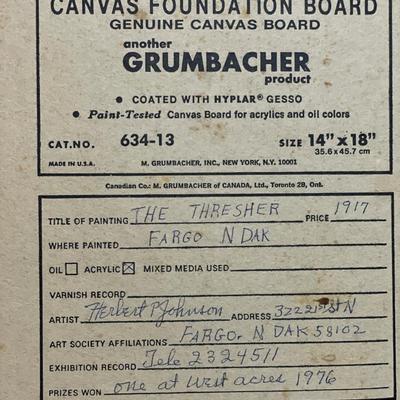 CANVAS FOUNDATION BOARD
GENUINE CANVAS BOARD
another
GRUMBACHER
product
• COATED WITH HYPLAR® GESSO
• Paint-Tested Canvas Board for acrylics and oil colors
CAT.NO. 634-13 SIZE 14"x18"
35.6x45.7 cm
MADE IN U.S.A. M. GRUMBACHER, INC., NEW YORK, N.Y. 10001
Canadian Co.: M. GRUMBACHER of CANADA, Ltd., Toronto 2B, Ont.
TITLE OF PAINTING THE THRESHER PRICE 1917
WHERE PAINTED FARGO N DAK
OIL ☐ ACRYLIC ☒ MIXED MEDIA USED
VARNISH RECORD
ARTIST Herbert P Johnson ADDRESS 322 21st St N
ART SOCIETY AFFILIATIONS FARGO. N DAK 58102
EXHIBITION RECORD Tele 2324511
PRIZES WON one at West acres 1976